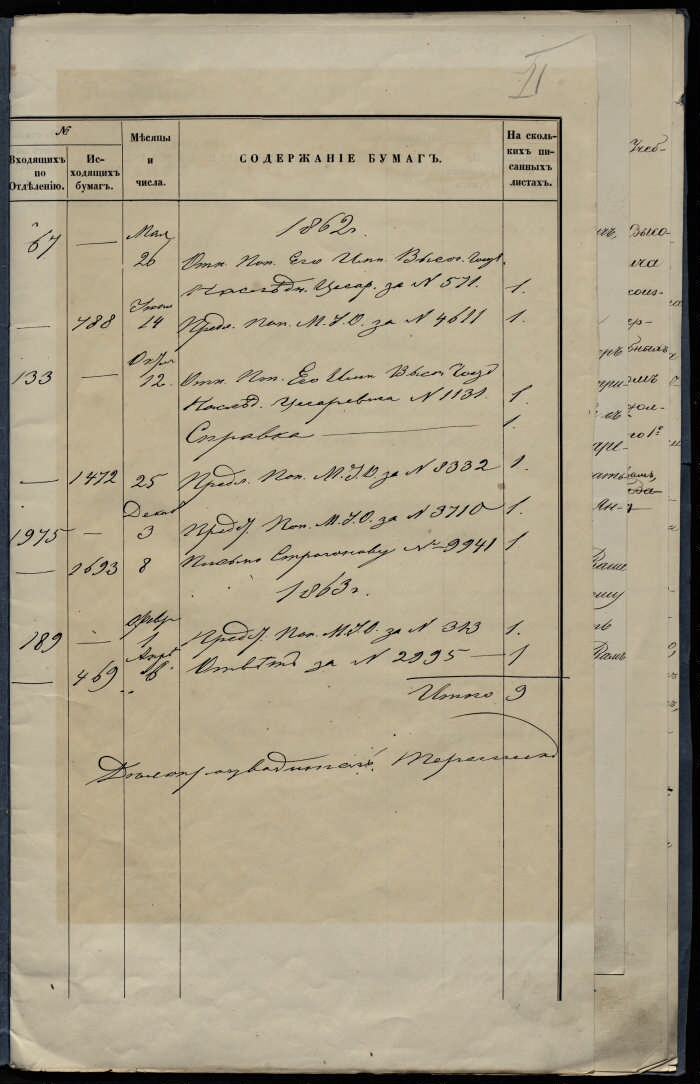 II
№
Входящихъ по Отдѣленію.
Исходящихъ бумагъ.
Мѣсяцы и числа.
СОДЕРЖАНІЕ БУМАГЪ.
На сколькихъ писанныхъ листахъ.
1862 г.
67 — 26 Отн. Поп. Его Имп. Высоч. Госуд.
Наслѣдн. Цесар. за N 571. 1.
— 788 14 Предл. Поп. М. У. О. за N 4611 1.
133 — 12. Отн. Поп. Его Имп. Высоч. Госуд
Наслѣд. Цесаревича N 1131. 1.
Справка — 1.
— 1472 25 Предл. Поп. М. У. О. за N 8332 1.
Декаб
1975 — 3 Предл. Поп. М. У. О. за N 3710 1.
— 1693 8 Письмо Строгонову № 9941 1
1863 г.
Февр
189 — 1 Предл. Поп. М. У. О. за N 343 1.
Апрѣ
— 469 16. Отвѣтъ за N 2995 — 1
Итого 9